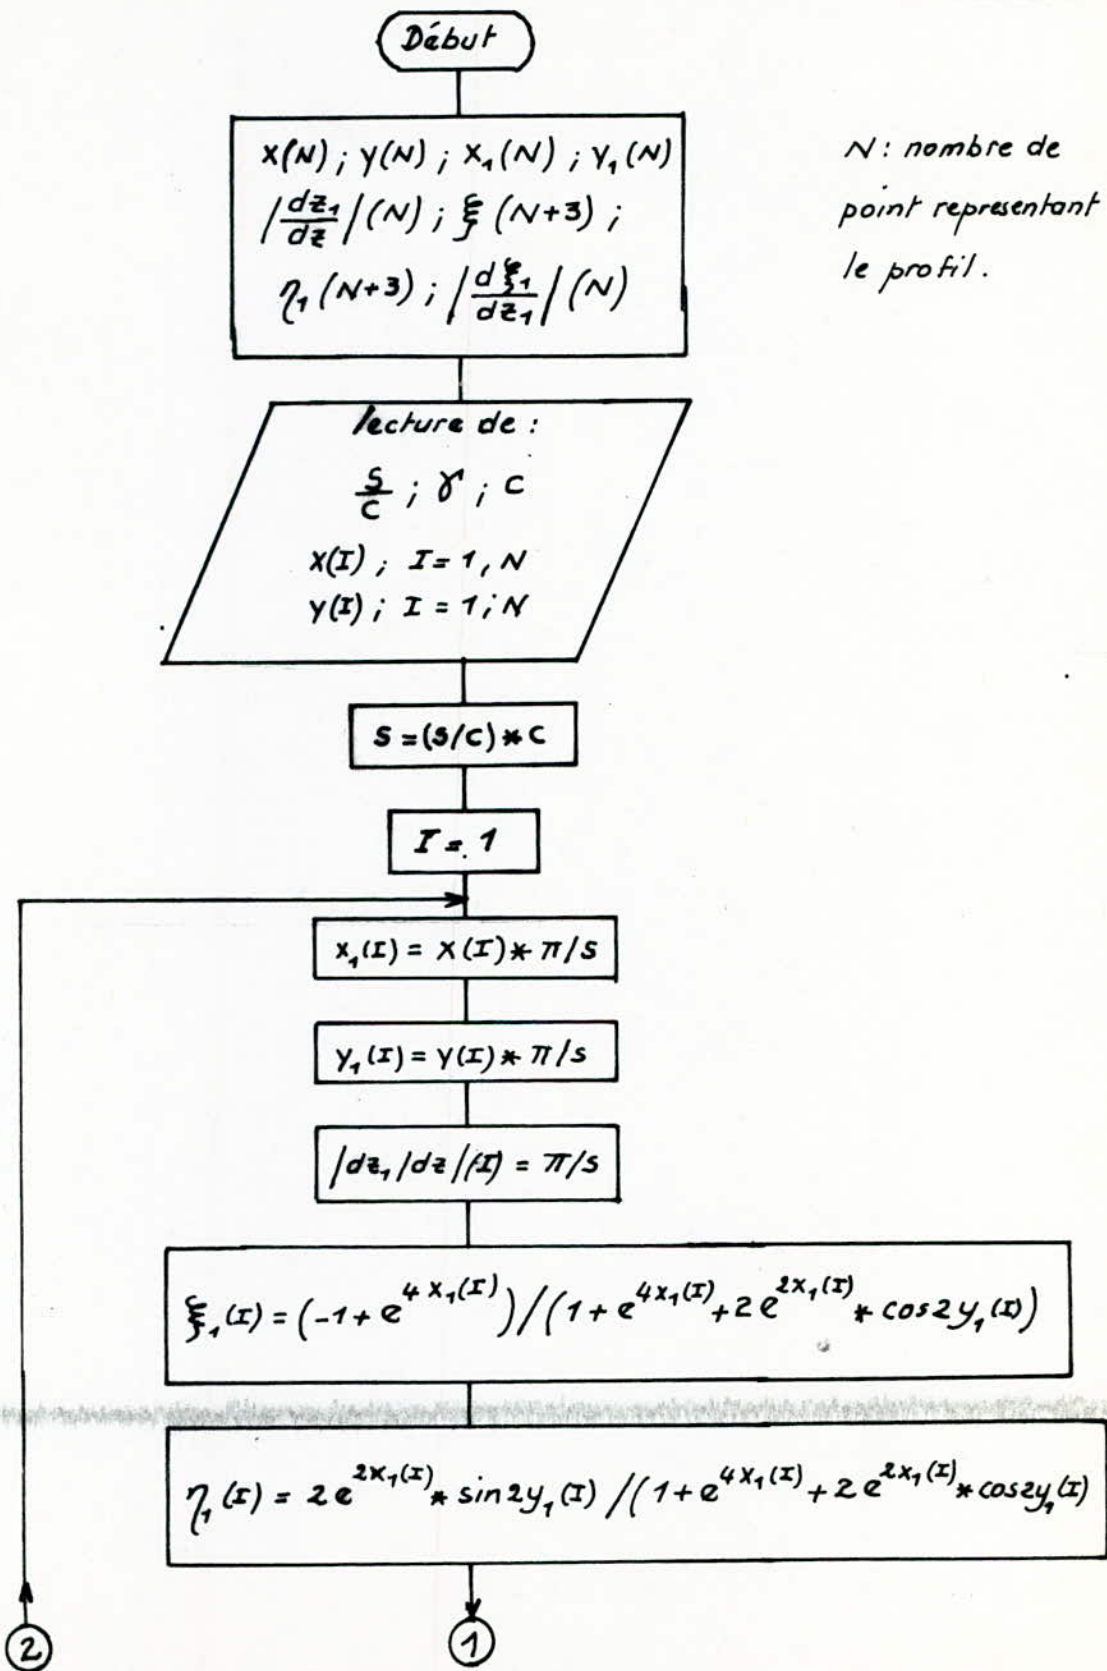 Début
X(N) ; Y(N) ; X₁(N) ; Y₁(N)
|dz₁/dz|(N) ; ξ (N+3) ;
η₁(N+3) ; |dξ₁/dz₁|(N)
N : nombre de
point representant
le profil.
lecture de :
S/C ; γ ; C
X(I) ; I = 1, N
Y(I) ; I = 1 ; N
S = (S/C) * C
I = 1
X₁(I) = X(I) * π/S
Y₁(I) = Y(I) * π/S
|dz₁/dz|(I) = π/S
ξ₁(I) = (-1 + e^{4X₁(I)}) / (1 + e^{4X₁(I)} + 2e^{2X₁(I)} * cos2y₁(I))
η₁(I) = 2e^{2X₁(I)} * sin2y₁(I) / (1 + e^{4X₁(I)} + 2e^{2X₁(I)} * cos2y₁(I)
2
1